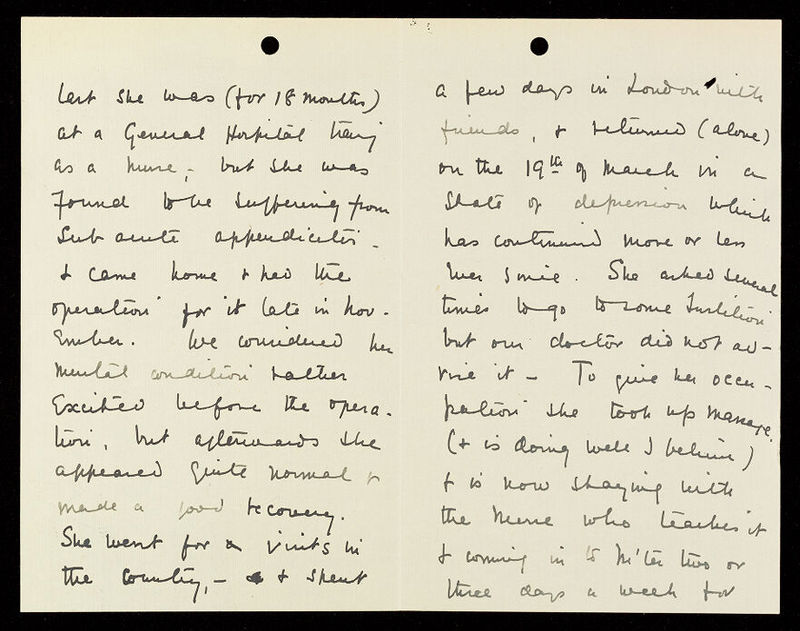 last she was (for 18 months)
at a General Hospital
as a Nurse, - but she was
found to be suffering from
sub acute appendicitis -
& came home & had the
operation for it late in Nov-
ember. We considered her
mental condition rather
excited before the opera-
tion, but afterwards she
appeared quite normal &
made a good recovery.
She went for visits in
the country, - & spent
a few days in London with
friends, & returned (alone)
on the 19th of March in a
state of depression which
has continued more or less
ever since. She asked several
times to go to some Institution
but our doctor did not ad-
vise it - To give her occu-
pation she took up massage.
(& is doing well I believe)
& is now staying with
the Nurse who teaches it
& coming in to M'ter two or
three days a week for